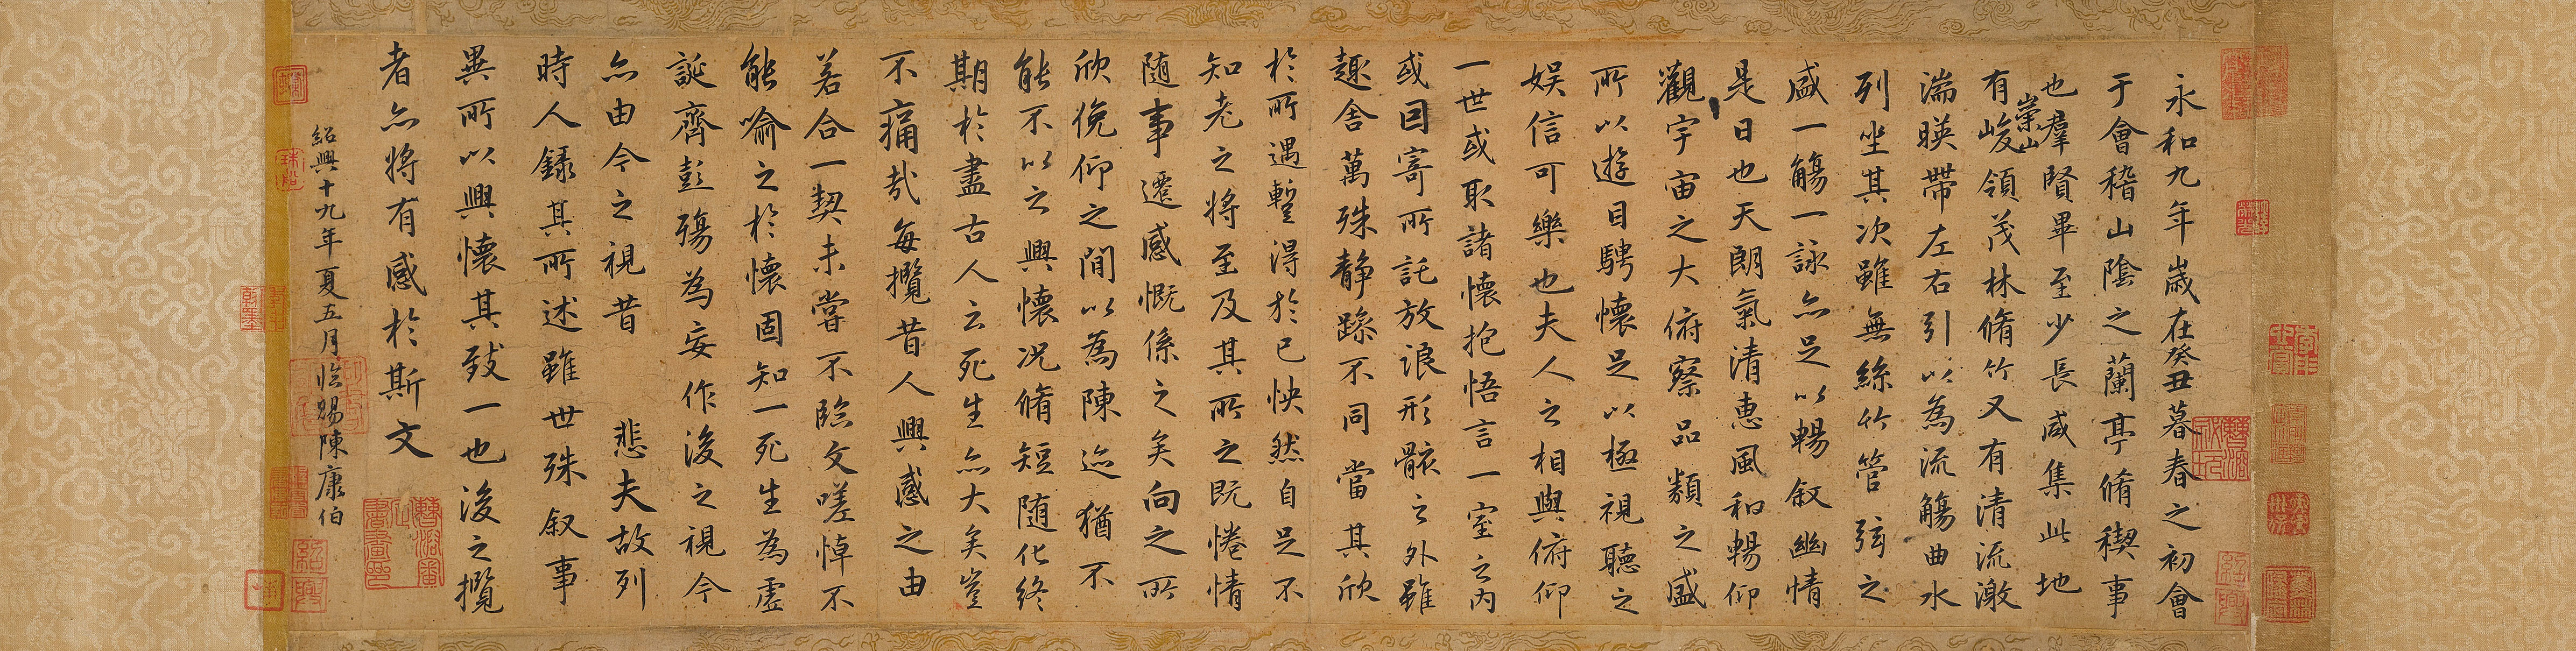 永和九年歲在癸丑暮春之初會
于會稽山陰之蘭亭脩稧事
也羣賢畢至少長咸集此地
有崇山峻領茂林脩竹又有清流激
湍暎帶左右引以為流觴曲水
列坐其次雖無絲竹管弦之
盛一觴一詠亦足以暢叙幽情
是日也天朗氣清惠風和暢仰
觀宇宙之大俯察品類之盛
所以遊目騁懷足以極視聽之
娱信可樂也夫人之相與俯仰
一世或取諸懷抱悟言一室之内
或因寄所託放浪形骸之外雖
趣舍萬殊静躁不同當其欣
於所遇蹔得於己怏然自足不
知老之將至及其所之既惓情
随事遷感慨係之矣向之所
欣俛仰之閒以為陳迹猶不
能不以之興懷况脩短随化終
期於盡古人云死生亦大矣豈
不痛哉每攬昔人興感之由
若合一契未嘗不臨文嗟悼不
能喻之於懷固知一死生為虛
誕齊彭殤為妄作後之視今
亦由今之視昔 悲夫故列
時人錄其所述雖世殊叙事
異所以興懷其致一也後之攬
者亦將有感於斯文
紹興十九年夏五月臨賜陳康伯